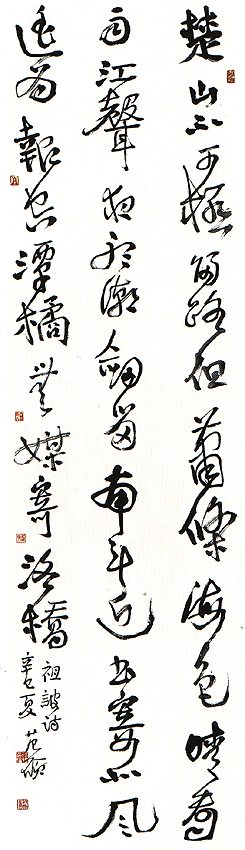 楚山不可極歸路但蕭條海色晴看
雨江聲夜聽潮劍留南斗近書寄北風
遙為報空潭橘無媒寄洛橋
祖詠诗
辛巳夏